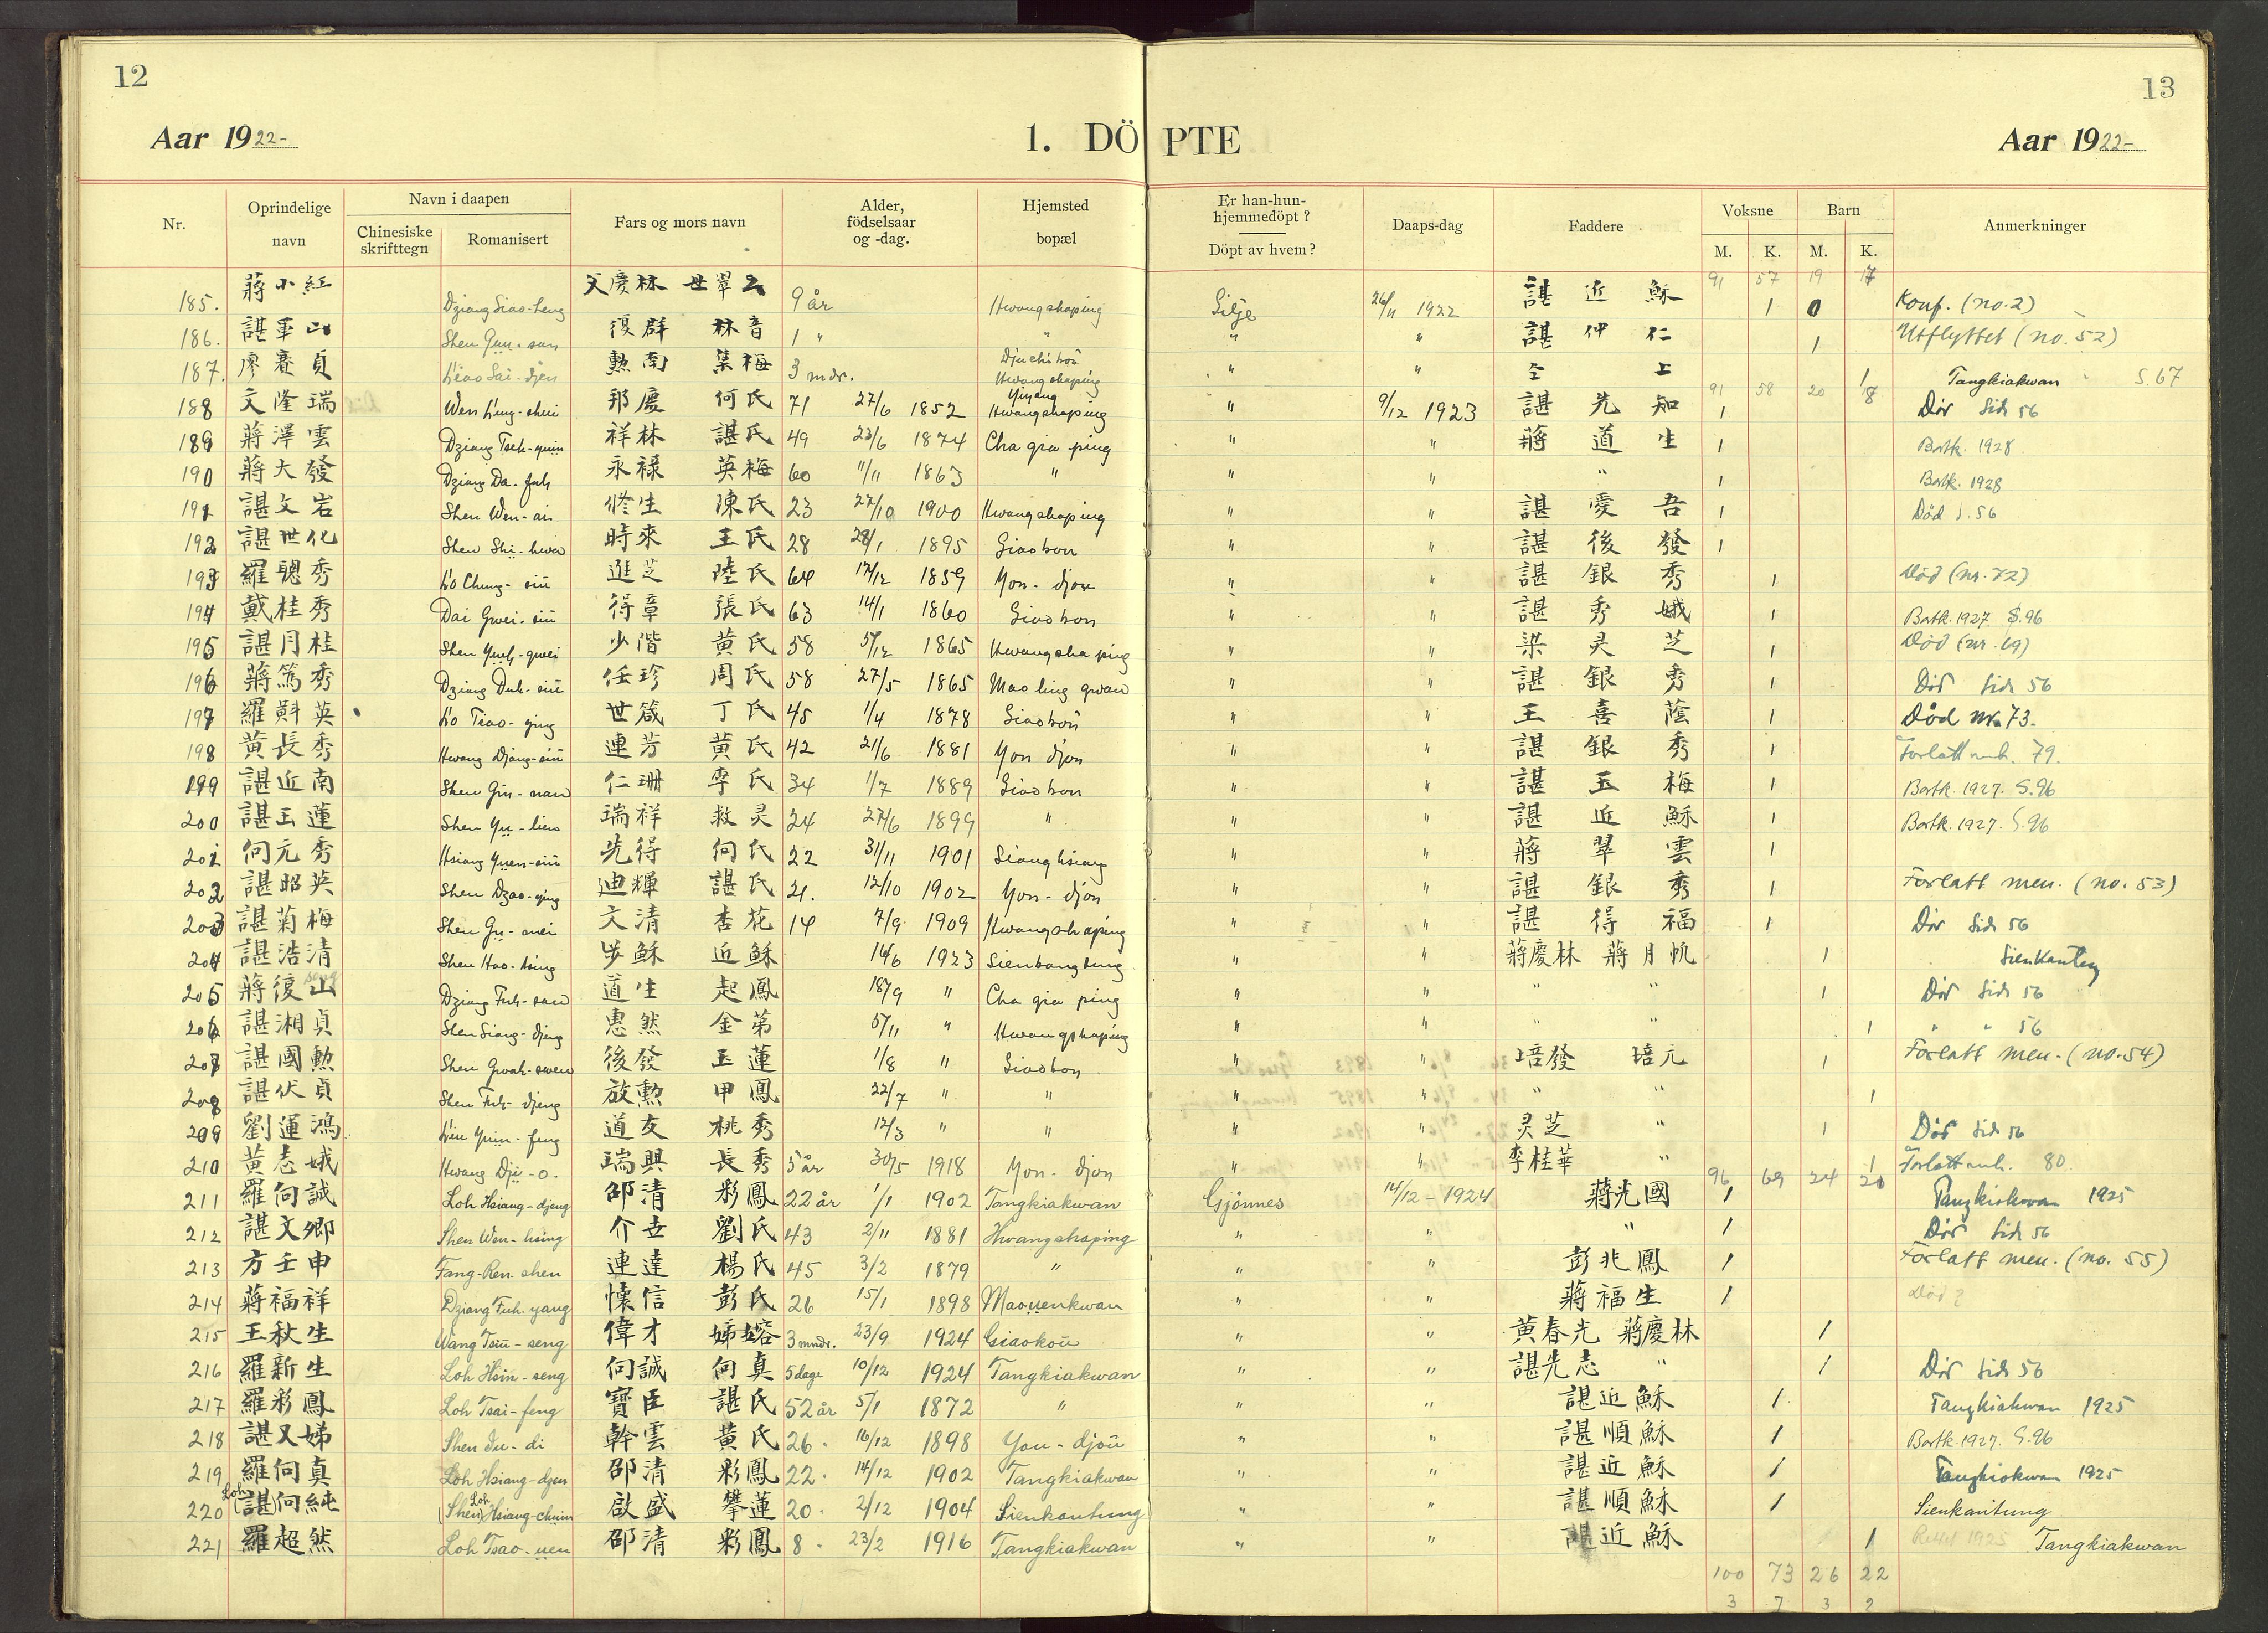 12
13
Aar 1922-
1. DÖPTE
Aar 1922-
Nr. Oprindelige navn Navn i daapen Chinesiske skrifttegn Romanisert Fars og mors navn Alder, födselsaar og -dag. Hjemsted bopæl Er han-hun-hjemmedöpt? Döpt av hvem? Daaps-dag Faddere Voksne M. K. Barn M. K. Anmerkninger
91 57 19 17
185. 蔣小紅 Dziang Siao-heng 父慶林 母翠云 9 år Hwangshaping Silje 26/11 1922 諶近穌 1 0 Konf. (no. 2)
186. 諶軍山 Shen Gün-san 復群 林音 1 " " " " 諶仲仁 1 Utflyttet (no. 52)
187. 廖賽貞 Liao Sai-djen 勲南 集梅 3 mdr. Hwangshaping " " 仝上 1 Tangkiakwan S. 67
91 58 20 18
188 文隆瑞 Wen Lung-shui 邦慶 何氏 71 27/6 1852 Yiyang Hwangshaping " 9/12 1923 諶先知 1 Död Side 56
189 蔣澤雲 Dziang Tseh-yuin 祥林 諶氏 49 23/6 1874 Cha gia ping " " 蔣道生 1 Bortk. 1928
190 蔣大發 Dziang Da-fah 永祿 英梅 60 11/11 1863 " " " " 1 Bortk. 1928
191 諶文岩 Shen Wen-ai 修生 陳氏 23 27/10 1900 Hwangshaping " " 諶愛吾 1 Död S. 56
192 諶世化 Shen Shi-hwa 時來 王氏 28 28/1 1895 Giaokou " " 諶後發 1
193 羅聰秀 Lo Chung-siu 進芝 陸氏 64 17/12 1859 You-djou " " 諶銀秀 1 Död (nr. 72)
194 戴桂秀 Dai Gwei-siu 得章 張氏 63 14/1 1860 Giaokou " " 諶秀娥 1 Bortk. 1927 S. 96
195 諶月桂 Shen Yueh-gwei 少階 黃氏 58 5/12 1865 Hwangshaping " " 梁灵芝 1 Död (nr. 69)
196 蔣篤秀 Dziang Duh-siu 任珍 周氏 58 27/5 1865 Mao ling gwan " " 諶銀秀 1 Död Side 56
197 羅斢英 Lo Tiao-ying 世箴 丁氏 45 1/4 1878 Giaokou " " 王喜蔭 1 Död nr. 73.
198 黃長秀 Hwang Djang-siu 連芳 黃氏 42 21/6 1881 You djou " " 諶銀秀 1 Forlatt mh. 79.
199 諶近南 Shen Gin-nan 仁珊 李氏 34 1/7 1889 Giaokou " " 諶玉梅 1 Bortk. 1927. S. 96
200 諶玉蓮 Shen Yu-lien 瑞祥 救灵 24 27/6 1899 " " " 諶近穌 1 Bortk. 1927. S. 96
201 向元秀 Hsiang Yuen-siu 先得 向氏 22 31/11 1901 Sianghsiang " " 蔣翠雲 1
202 諶昭英 Shen Dzao-ying 迪輝 諶氏 21. 12/10 1902 You-djou " " 諶銀秀 1 Forlatt men. (no. 53)
203 諶菊梅 Shen Gu-mei 文清 杏花 14 7/9 1909 Hwangshaping " " 諶得福 1 Död Side 56
204 諶浩清 Shen Hao-tsing 步穌 近穌 14/6 1923 Sienkangtung " " 蔣慶林 蔣月帆 1 Sienkantung
205 蔣復山 Dziang Fuh-san 道生 起鳳 18/9 " Cha gia ping " " " " 1 Död Side 56
206 諶湘貞 Shen Siang-djeng 惠然 金第 5/11 " Hwangshaping " " " " 1 " " 56
207 諶國勲 Shen Gwoh-swen 後發 玉蓮 1/8 " Giaokou " " 培發 培元 1 Forlatt men. (no. 54)
208 諶伏貞 Shen Fuh-djeng 放勲 甲鳳 22/7 " " " " " " 1
209 劉運鴻 Liu Yuin-feng 道友 桃秀 12/3 " " " " 灵芝 " 1 Död Side 56
210 黃志娥 Hwang Dji-o. 瑞興 長秀 5 år 30/5 1918 You-djou " " 李桂華 " 1 Forlatt mh. 80.
96 69 24 20
211 羅向誠 Loh Hsiang-djeng 邵清 彩鳳 22 år 1/1 1902 Tangkiakwan Gjönnes 14/12-1924 蔣光國 1 Tangkiakwan 1925
212 諶文卿 Shen Wen-hsing 介吉 劉氏 43 2/11 1881 Hwangshaping " " " 1 Död Side 56
213 方壬申 Fang-Ren-shen 連達 楊氏 45 3/2 1879 " " " 彭兆鳳 1 Forlatt men. (no. 55)
214 蔣福祥 Dziang Fuh-yang 懷信 彭氏 26 15/1 1898 Maouenkwan " " 蔣福生 1 Död?
215 王秋生 Wang Tsiu-seng 偉才 娣嫆 3 mndr. 23/9 1924 Giaokou " " 黃春光 蔣慶林 1
216 羅新生 Loh Hsin-seng 向誠 向真 5 dage 10/12 1924 Tangkiakwan " " 諶先志 " 1 Död Side 56
217 羅彩鳳 Loh Tsai-feng 寶臣 諶氏 52 år 5/1 1872 " " " 諶近穌 1 Tangkiakwan 1925
218 諶又娣 Shen Iu-di 幹雲 黃氏 26 16/12 1898 You-djou " " 諶順穌 1 Bortk. 1927. S. 96
219 羅向真 Loh Hsiang-dzen 邵清 彩鳳 22 14/12 1902 Tangkiakwan " " 諶近穌 1 Tangkiakwan 1925
220 Loh (諶向純 (Shen) Loh Hsiang-chuin 啟盛 攀蓮 20 2/12 1904 Sienkantung " " 諶順穌 1 Sienkantung
221 羅超然 Loh Tsao-uen 邵清 彩鳳 8 23/2 1916 Tangkiakwan " " 諶近穌 1 1925 Tangkiakwan
100 73 26 22
3 7 3 2